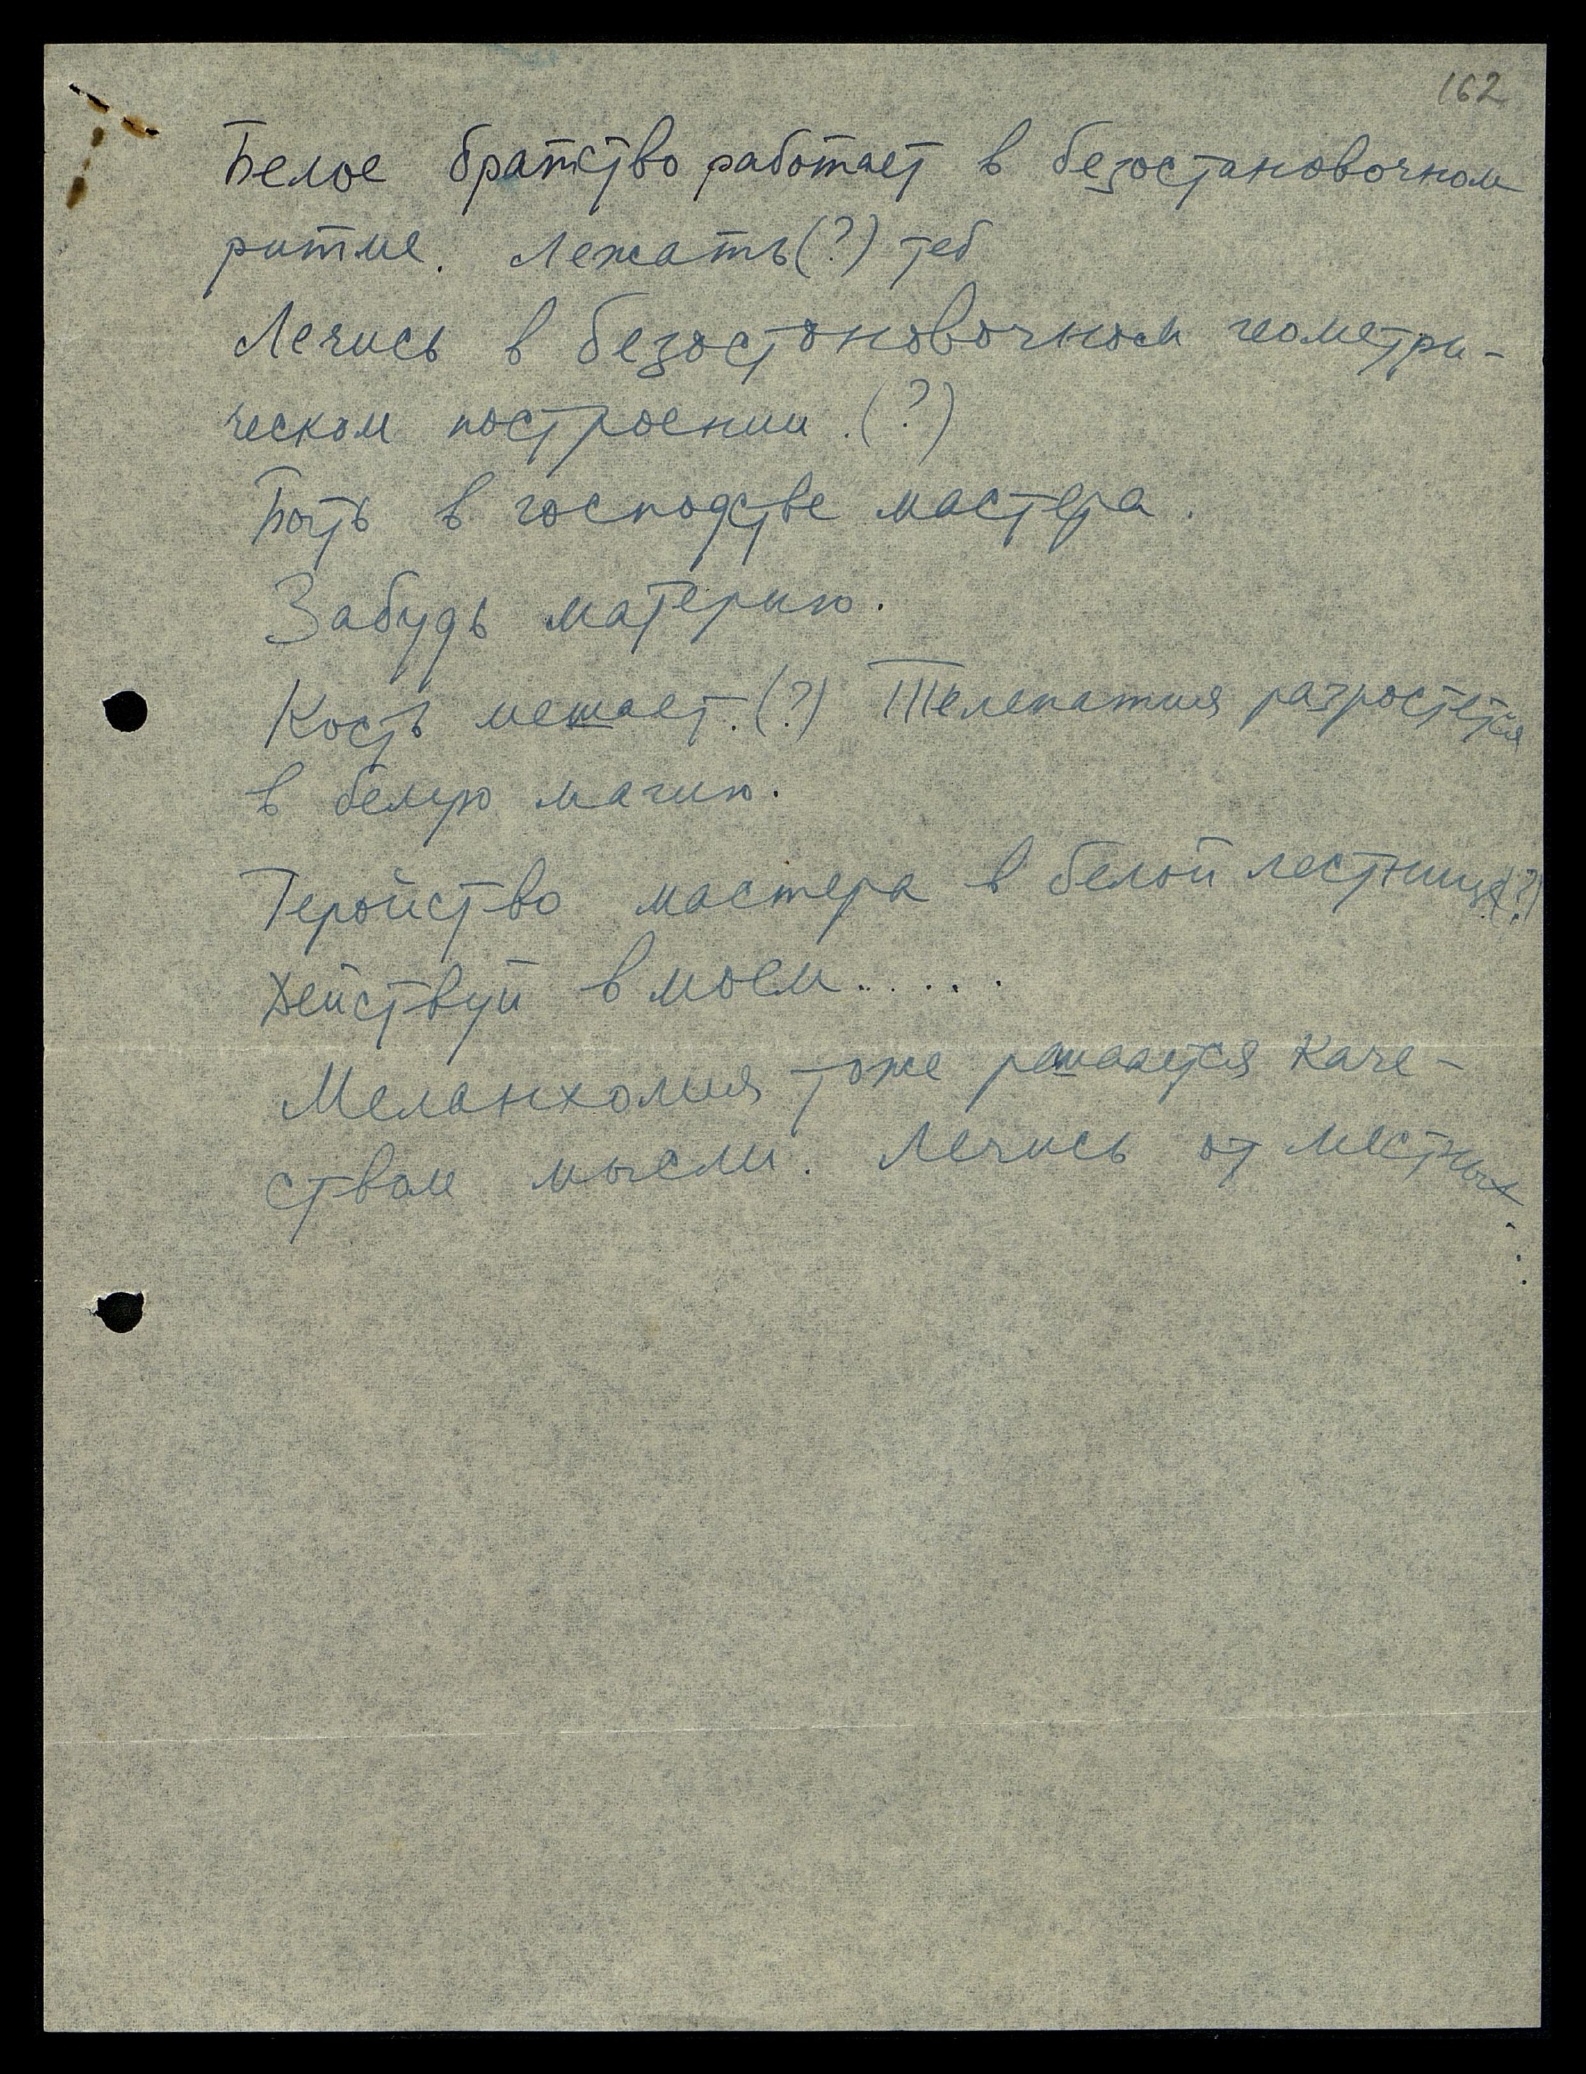 162
Белое братство работает в безостановочном
ритме. Лежать (?) теб
Лечись в безостановочном геометри-
ческом построении. (?)
Быть в господстве мастера.
Забудь материю.
Кость мешает. (?) Телепатия разростется
в белую магию.
Геройство мастера в белой лестнице (?)
Действуй в моем . . . . .
Меланхолия тоже решается каче-
ством мысли. Лечись от местных
. . .